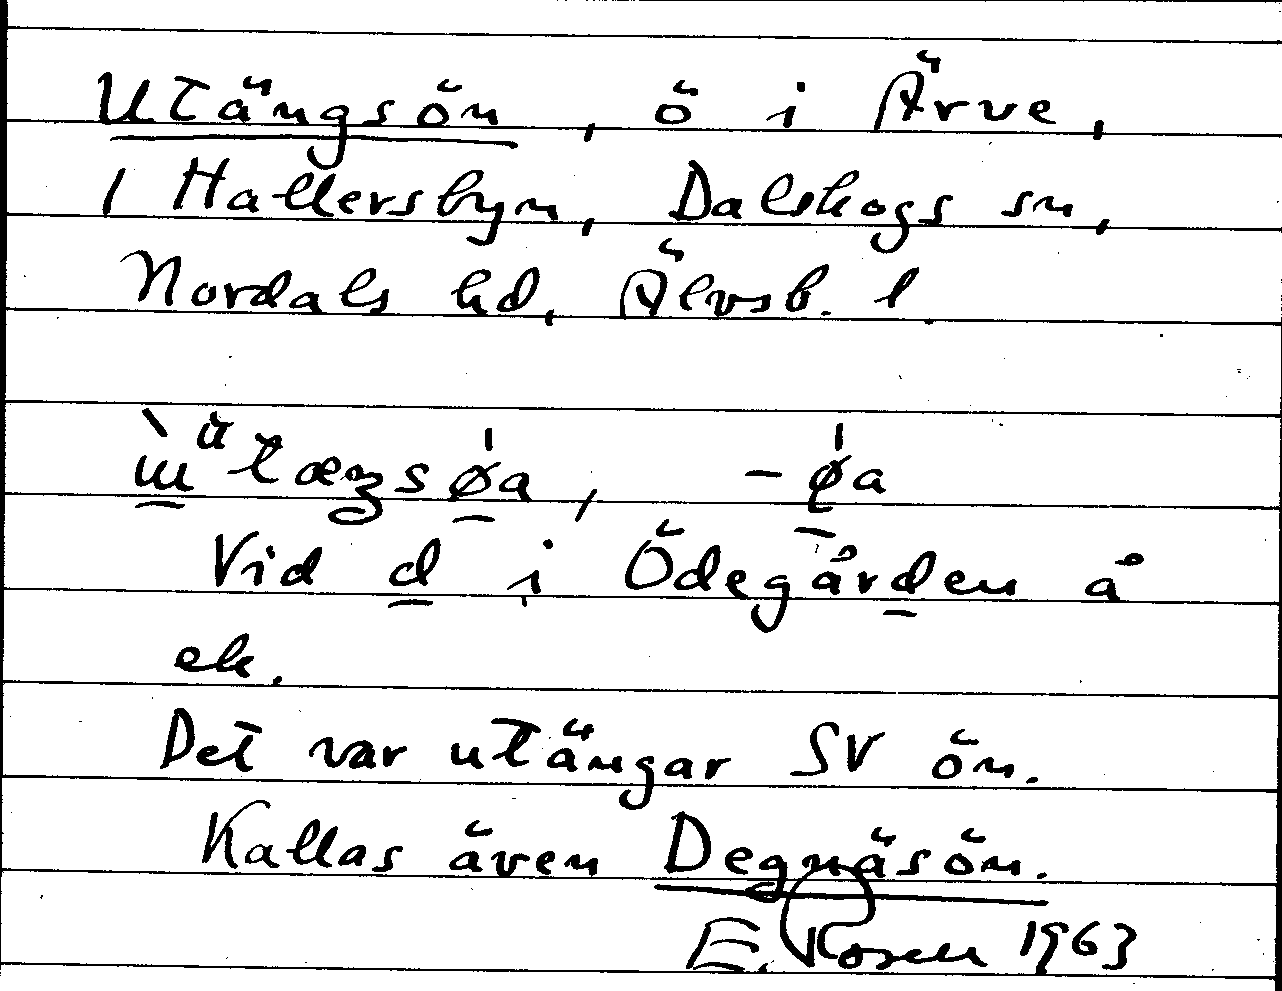 Utängsön, ö i Ärve,
1 Hallersbyn, Dalskogs sn,
Nordals hd, Älvsb. l.
-øa
Vid d i Ödegården å
ek.
Det var utängar SV ön.
Kallas även Degnäsön.
E. Rosell 1963